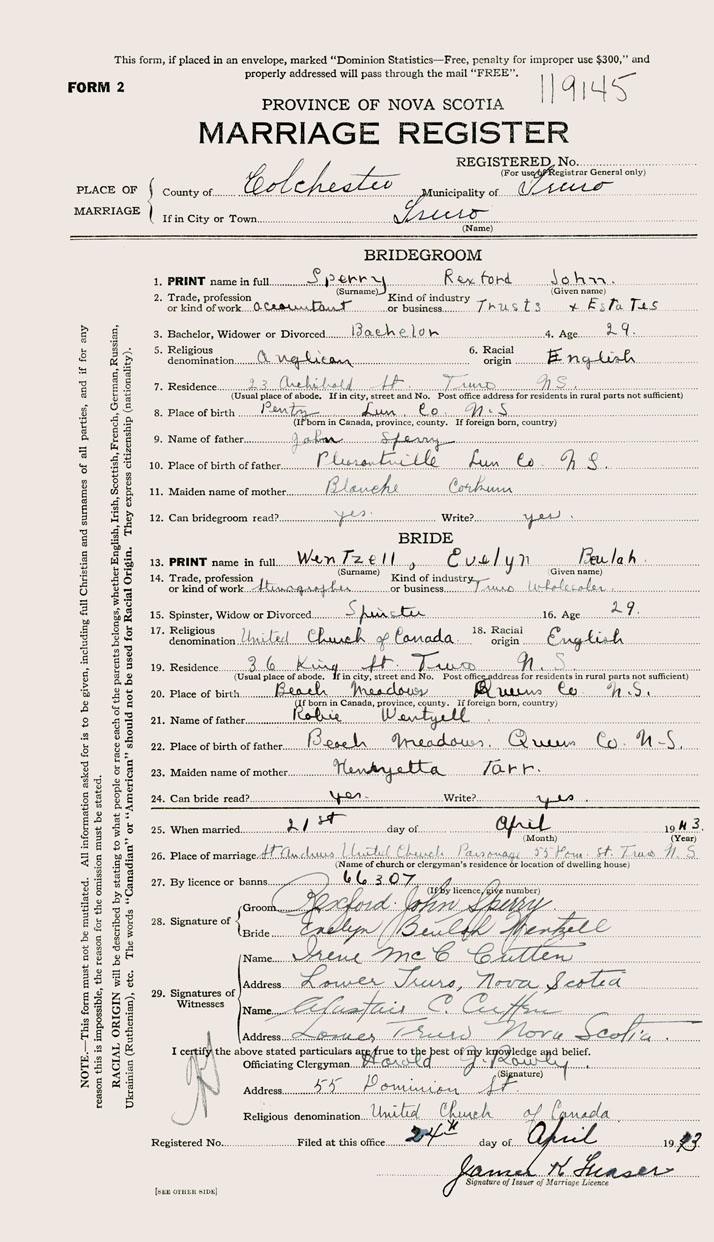 This form, if placed in an envelope, marked "Dominion Statistics—Free, penalty for improper use $300," and
properly addressed will pass through the mail "FREE".
FORM 2
119145
PROVINCE OF NOVA SCOTIA
MARRIAGE REGISTER
REGISTERED No.
(For use of Registrar General only)
PLACE OF MARRIAGE
County of Colchester Municipality of Truro
If in City or Town Truro
(Name)
BRIDEGROOM
1. PRINT name in full Sperry Rexford John.
(Surname) (Given name)
2. Trade, profession or kind of work accountant Kind of industry or business Trusts + Estates
3. Bachelor, Widower or Divorced Bachelor 4. Age 29.
5. Religious denomination Anglican 6. Racial origin English
7. Residence 23 Archibald St. Truro N.S.
(Usual place of abode. If in city, street and No. Post office address for residents in rural parts not sufficient)
8. Place of birth Lun Co. N.S
(If born in Canada, province, county. If foreign born, country)
9. Name of father John Sperry
10. Place of birth of father Pleasantville Lun Co. N S.
11. Maiden name of mother Blanche Corkum
12. Can bridegroom read? yes. Write? yes.
BRIDE
13. PRINT name in full Wentzell, Evelyn Beulah.
(Surname) (Given name)
14. Trade, profession or kind of work Stenographer Kind of industry or business Truro Wholesaler.
15. Spinster, Widow or Divorced Spinster 16. Age 29.
17. Religious denomination United Church of Canada. 18. Racial origin English
19. Residence 36 King St. Truro N.S.
(Usual place of abode. If in city, street and No. Post office address for residents in rural parts not sufficient)
20. Place of birth Beach Meadows Queens Co N.S.
(If born in Canada, province, county. If foreign born, country)
21. Name of father Robie Wentzell
22. Place of birth of father Beach Meadows. Queens Co. N-S.
23. Maiden name of mother Henryetta Tarr.
24. Can bride read? yes. Write? yes.
25. When married 21st day of April 1943.
(Month) (Year)
26. Place of marriage St Andrews United Church Parsonage 55 Dom. St. Truro N.S
(Name of church or clergyman's residence or location of dwelling house)
27. By licence or banns 66307
(If by licence, give number)
28. Signature of
Groom Rexford John Sperry
Bride Evelyn Beulah Wentzell
29. Signatures of Witnesses
Name Irene McC Cutten
Address Lower Truro, Nova Scotia
Name Alastair C. Cutten
Address Lower Truro Nova Scotia.
I certify the above stated particulars are true to the best of my knowledge and belief.
Officiating Clergyman Harold J.
(Signature)
Address 55 Dominion St
Religious denomination United Church of Canada
Registered No. Filed at this office 24th day of April 1943
James K Fraser
Signature of Issuer of Marriage Licence
[SEE OTHER SIDE]
NOTE.—This form must not be mutilated. All information asked for is to be given, including full Christian and surnames of all parties, and if for any
reason this is impossible, the reason for the omission must be stated.
RACIAL ORIGIN will be described by stating to what people or race each of the parents belongs, whether English, Irish, Scottish, French, German, Russian,
Ukrainian (Ruthenian), etc. The words "Canadian" or "American" should not be used for Racial Origin. They express citizenship (nationality).